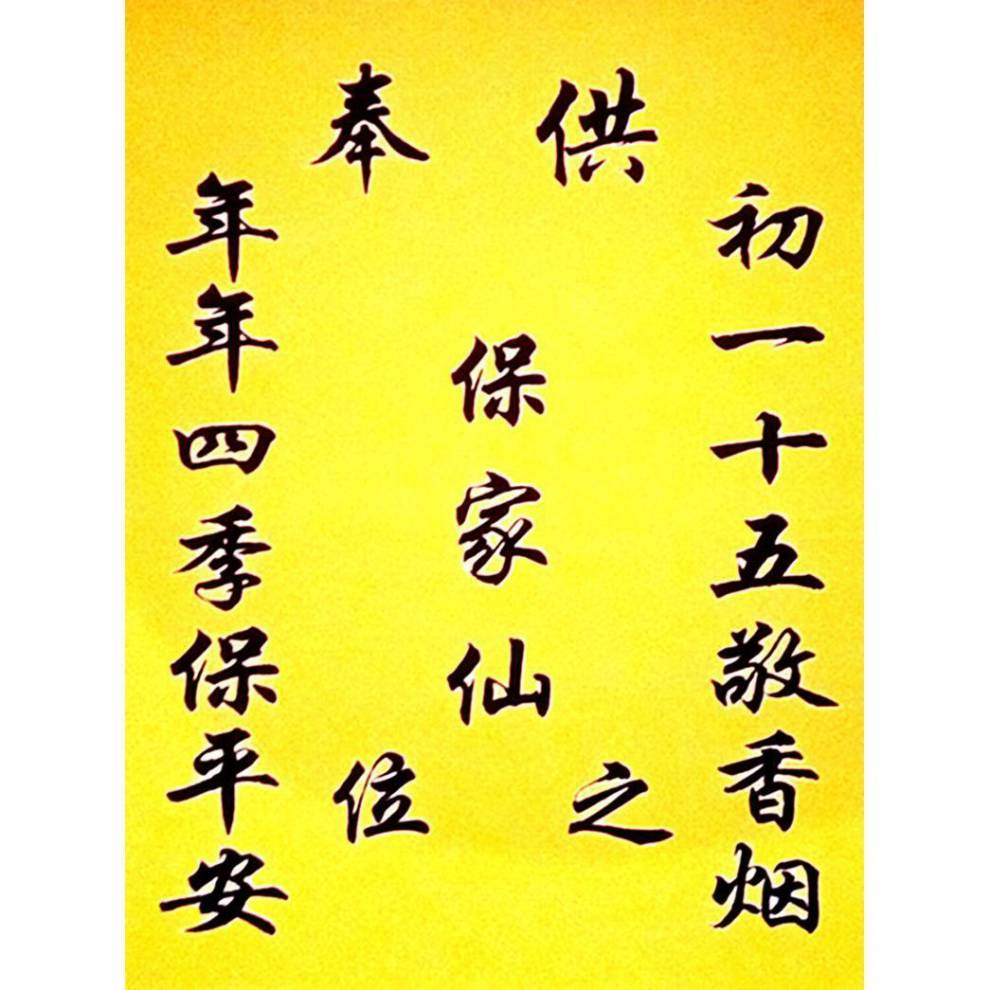 供奉
初一十五敬香烟
保家仙
之位
年年四季保平安